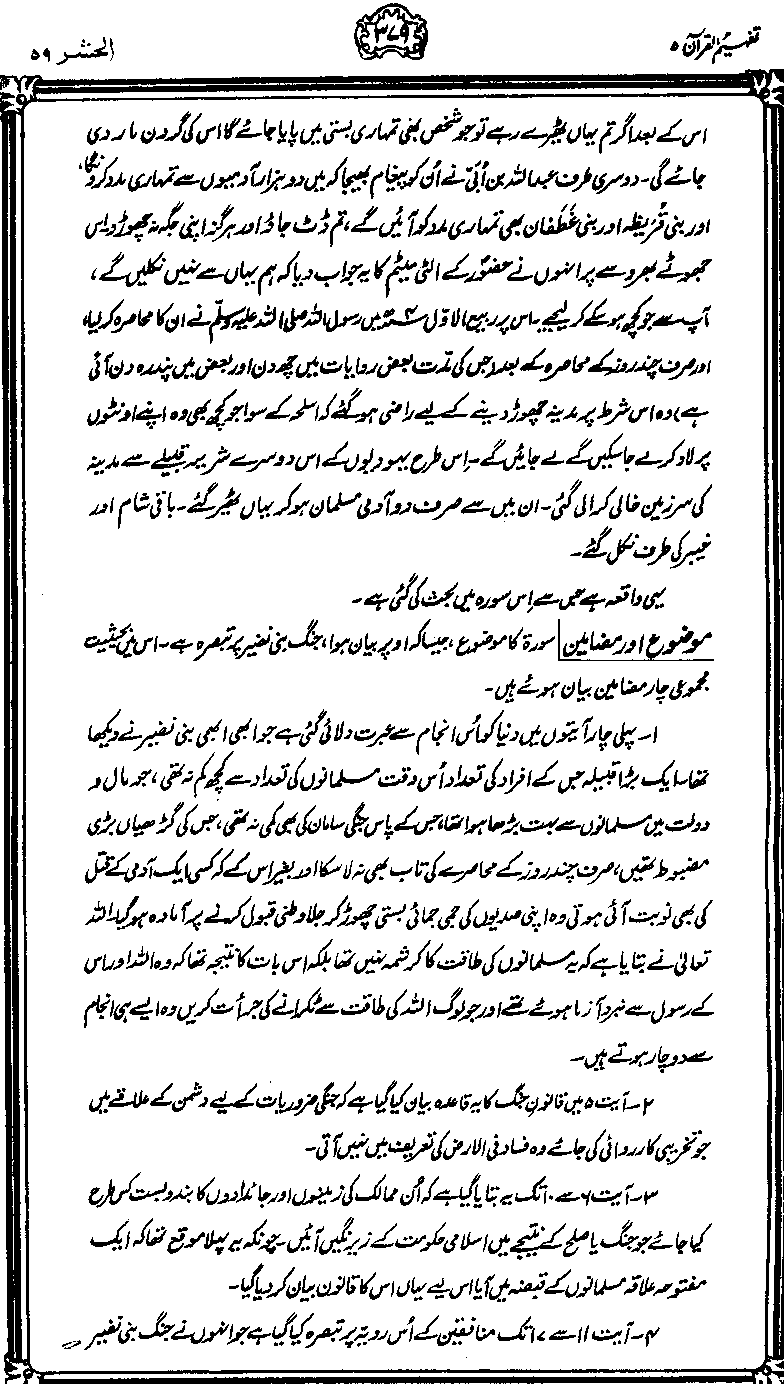 تفہیم القرآن ۵
۳۷۹
الحشر ۵۹
اس کے بعد اگر تم یہاں ٹھیرے رہے تو جو شخص بھی تمہاری بستی میں پایا جائے گا اس کی گردن مار دی
جائے گی۔ دوسری طرف عبداللہ بن اُبَیّ نے اُن کو پیغام بھیجا کہ میں دو ہزار آدمیوں سے تمہاری مدد کروں گا،
اور بنی قُرَیظہ اور بنی غَطَفان بھی تمہاری مدد کو آئیں گے، تم ڈٹ جاؤ اور ہرگز اپنی جگہ نہ چھوڑو۔ اس
جھوٹے بھروسے پر انہوں نے حضورؐ کے الٹی میٹم کا یہ جواب دیا کہ ہم یہاں سے نہیں نکلیں گے،
آپ سے جو کچھ ہو سکے کر لیجیے۔ اس پر ربیع الاوّل ۴ ھ میں رسول اللہ صلی اللہ علیہ وسلم نے ان کا محاصرہ کر لیا،
اور صرف چند روز کے محاصرہ کے بعد (جس کی مدّت بعض روایات میں چھ دن اور بعض میں پندرہ دن آئی
ہے) وہ اس شرط پر مدینہ چھوڑ دینے کے لیے راضی ہو گئے کہ اسلحہ کے سوا جو کچھ بھی وہ اپنے اونٹوں
پر لاد کر لے جا سکیں گے لے جائیں گے۔ اِس طرح یہودیوں کے اس دوسرے شریر قبیلے سے مدینہ
کی سرزمین خالی کرالی گئی۔ ان میں سے صرف دو آدمی مسلمان ہو کر یہاں ٹھیر گئے۔ باقی شام اور
خیبر کی طرف نکل گئے۔
یہی واقعہ ہے جس سے اِس سورہ میں بحث کی گئی ہے۔
موضوع اور مضامین سورۃ کا موضوع، جیسا کہ اوپر بیان ہوا، جنگ بنی نضیر پر تبصرہ ہے۔ اس میں بحیثیت
مجموعی چار مضامین بیان ہوئے ہیں۔
۱۔ پہلی چار آیتوں میں دنیا کو اُس انجام سے عبرت دلائی گئی ہے جو ابھی ابھی بنی نضیر نے دیکھا
تھا۔ ایک بڑا قبیلہ جس کے افراد کی تعداد اُس وقت مسلمانوں کی تعداد سے کچھ کم نہ تھی، جو مال و
دولت میں مسلمانوں سے بہت بڑھا ہوا تھا، جس کے پاس جنگی سامان کی بھی کمی نہ تھی، جس کی گڑھیاں بڑی
مضبوط تھیں، صرف چند روز کے محاصرے کی تاب بھی نہ لا سکا اور بغیر اس کے کہ کسی ایک آدمی کے قتل
کی بھی نوبت آئی ہوتی وہ اپنی صدیوں کی جمی جمائی بستی چھوڑ کر جلا وطنی قبول کرنے پر آمادہ ہو گیا۔ اللہ
تعالیٰ نے بتایا ہے کہ یہ مسلمانوں کی طاقت کا کرشمہ نہیں تھا بلکہ اس بات کا نتیجہ تھا کہ وہ اللہ اور اس
کے رسول سے نبرد آزما ہوئے تھے اور جو لوگ اللہ کی طاقت سے ٹکرانے کی جرأت کریں وہ ایسے ہی انجام
سے دوچار ہوتے ہیں۔
۲۔ آیت ۵ میں قانونِ جنگ کا یہ قاعدہ بیان کیا گیا ہے کہ جنگی ضروریات کے لیے دشمن کے علاقے میں
جو تخریبی کارروائی کی جائے وہ فساد فی الارض کی تعریف میں نہیں آتی۔
۳۔ آیت ۶ سے ۱۰ تک یہ بتایا گیا ہے کہ اُن ممالک کی زمینوں اور جائدادوں کا بندوبست کس طرح
کیا جائے جو جنگ یا صلح کے نتیجے میں اسلامی حکومت کے زیر نگیں آئیں۔ چونکہ یہ پہلا موقع تھا کہ ایک
مفتوحہ علاقہ مسلمانوں کے قبضہ میں آیا اس لیے یہاں اس کا قانون بیان کر دیا گیا۔
۴۔ آیت ۱۱ سے ۱۷ تک منافقین کے اُس رویّہ پر تبصرہ کیا گیا ہے جو انہوں نے جنگ بنی نضیر